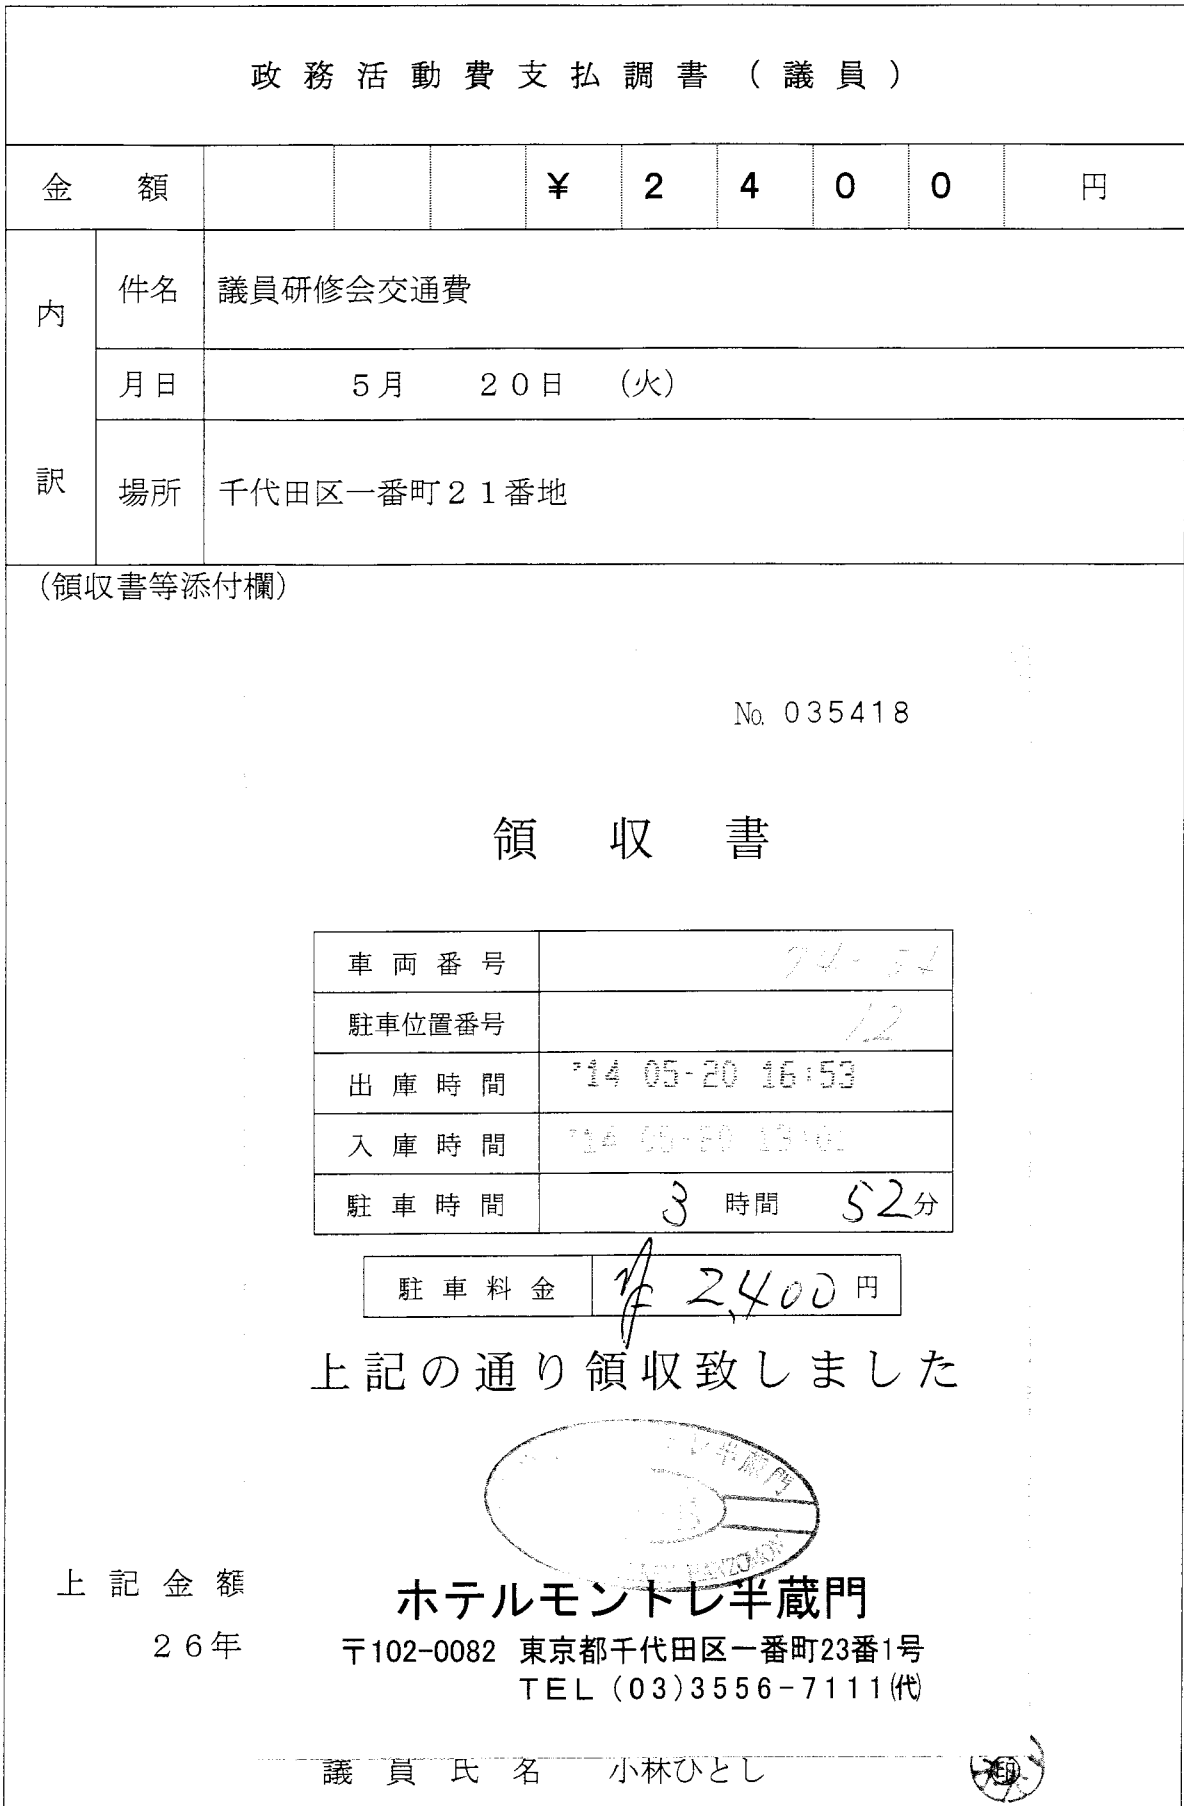 政務活動費支払調書（議員）
金額 ¥ 2 4 0 0 円
内訳
件名 議員研修会交通費
月日 5月 20日 (火)
場所 千代田区一番町21番地
(領収書等添付欄)
No. 035418
領収書
車両番号
駐車位置番号 12
出庫時間 '14 05-20 16:53
入庫時間 '14 05-20 13:01
駐車時間 3 時間 52分
駐車料金 ¥ 2,400 円
上記の通り領収致しました
レ半蔵門
上記金額
ホテルモントレ半蔵門
26年
〒102-0082 東京都千代田区一番町23番1号
TEL (03)3556-7111(代)
議員氏名 小林ひとし 印